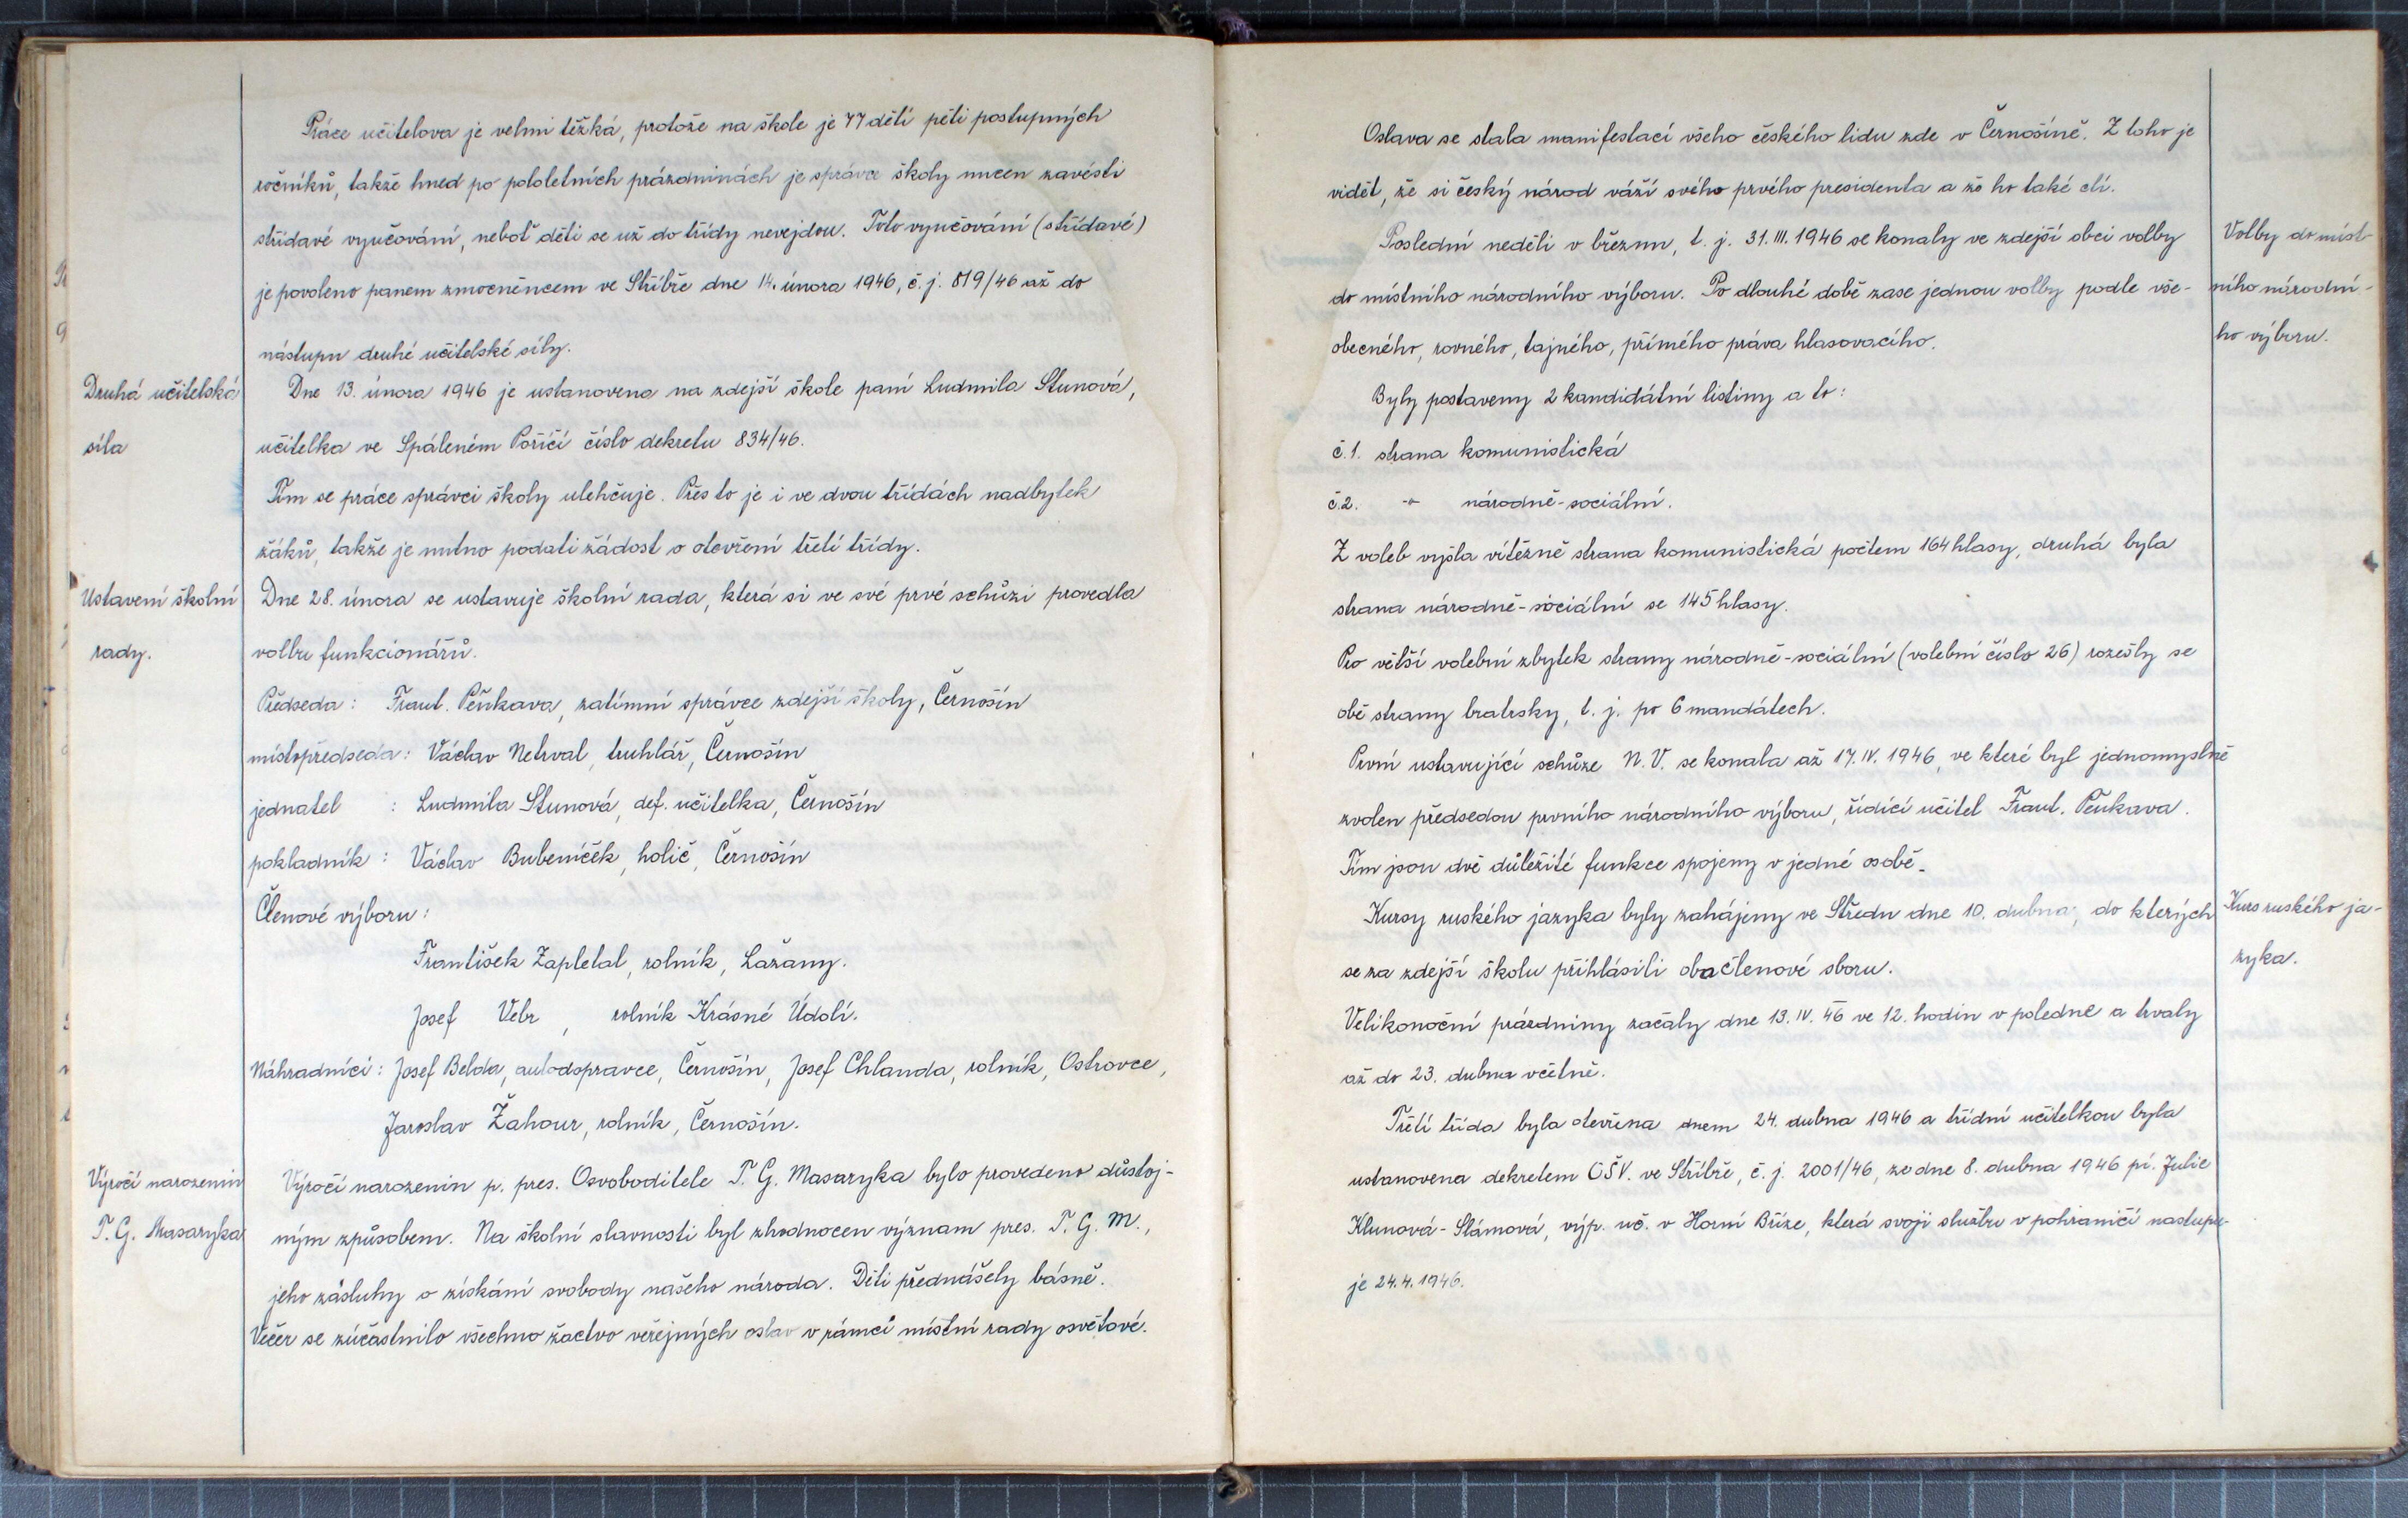 Práce učitelova je velmi těžká, protože na škole je 77 dětí pěti postupných
ročníků, takže hned po pololetních prázdninách je správce školy nucen zavésti
střídavé vyučování, neboť děti se už do třídy nevejdou. Toto vyučování (střídavé)
je povoleno panem zmocněncem ve Stříbře dne 14. února 1946, č. j. 819/46 až do
nástupu druhé učitelské síly.
Druhá učitelská
síla
Dne 13. února 1946 je ustanovena na zdejší škole paní Ludmila Stunová,
učitelka ve Spáleném Poříčí číslo dekretu 834/46.
Tím se práce správci školy ulehčuje. Přes to je i ve dvou třídách nadbytek
žáků, takže je nutno podati žádost o otevření třetí třídy.
Ustavení školní
rady.
Dne 28. února se ustavuje školní rada, která si ve své prvé schůzi provedla
volbu funkcionářů.
Předseda: Frant. Peňkava, zatímní správce zdejší školy, Černošín
místopředseda: Václav Netrval, truhlář, Černošín
jednatel : Ludmila Stunová, def. učitelka, Černošín
pokladník: Václav Bubeníček, holič, Černošín
Členové výboru:
František Zapletal, rolník, Lažany.
Josef Vebr, rolník Krásné Údolí.
Náhradníci: Josef Belda, autodopravce, Černošín, Josef Chlanda, rolník, Ostrovce,
Jaroslav Žahour, rolník, Černošín.
Výročí narozenin
T. G. Masaryka
Výročí narozenin p. pres. Osvoboditele T. G. Masaryka bylo provedeno důstoj-
ným způsobem. Na školní slavnosti byl zhodnocen význam pres. T. G. M.,
jeho zásluhy o získání svobody našeho národa. Děti přednášely básně.
Večer se zúčastnilo všechno žactvo veřejných oslav v rámci místní rady osvětové.
Oslava se stala manifestací všeho českého lidu zde v Černošíně. Z toho je
vidět, že si český národ váží svého prvého presidenta a že ho také ctí.
Poslední neděli v březnu, t. j. 31. III. 1946 se konaly ve zdejší obci volby
do místního národního výboru. Po dlouhé době zase jednou volby podle vše-
obecného, rovného, tajného, přímého práva hlasovacího.
Volby do míst-
ního národní-
ho výboru.
Byly postaveny 2 kandidátní listiny a to:
č. 1. strana komunistická
č. 2. -"- národně-sociální.
Z voleb vyšla vítězně strana komunistická počtem 164 hlasy, druhá byla
strana národně-sociální se 145 hlasy.
Pro větší volební zbytek strany národně-sociální (volební číslo 26) rozešly se
obě strany bratrsky, t. j. po 6 mandátech.
První ustavující schůze N. V. se konala až 17. IV. 1946, ve které byl jednomyslně
zvolen předsedou prvního národního výboru, řídící učitel Frant. Peňkava.
Tím jsou dvě důležité funkce spojeny v jedné osobě.
Kursy ruského jazyka byly zahájeny ve Středu dne 10. dubna, do kterých
se za zdejší školu přihlásili oba členové sboru.
Kurs ruského ja-
zyka.
Velikonoční prázdniny začaly dne 13. IV. 46 ve 12. hodin v poledne a trvaly
až do 23. dubna včetně.
Třetí třída byla otevřena dnem 24. dubna 1946 a třídní učitelkou byla
ustanovena dekretem OŠV. ve Stříbře, č. j. 2001/46, ze dne 8. dubna 1946 pí. Julie
Klunová-Slámová, výp. uč. v Horní Bříze, která svoji službu v pohraničí nastupu-
je 24. 4. 1946.